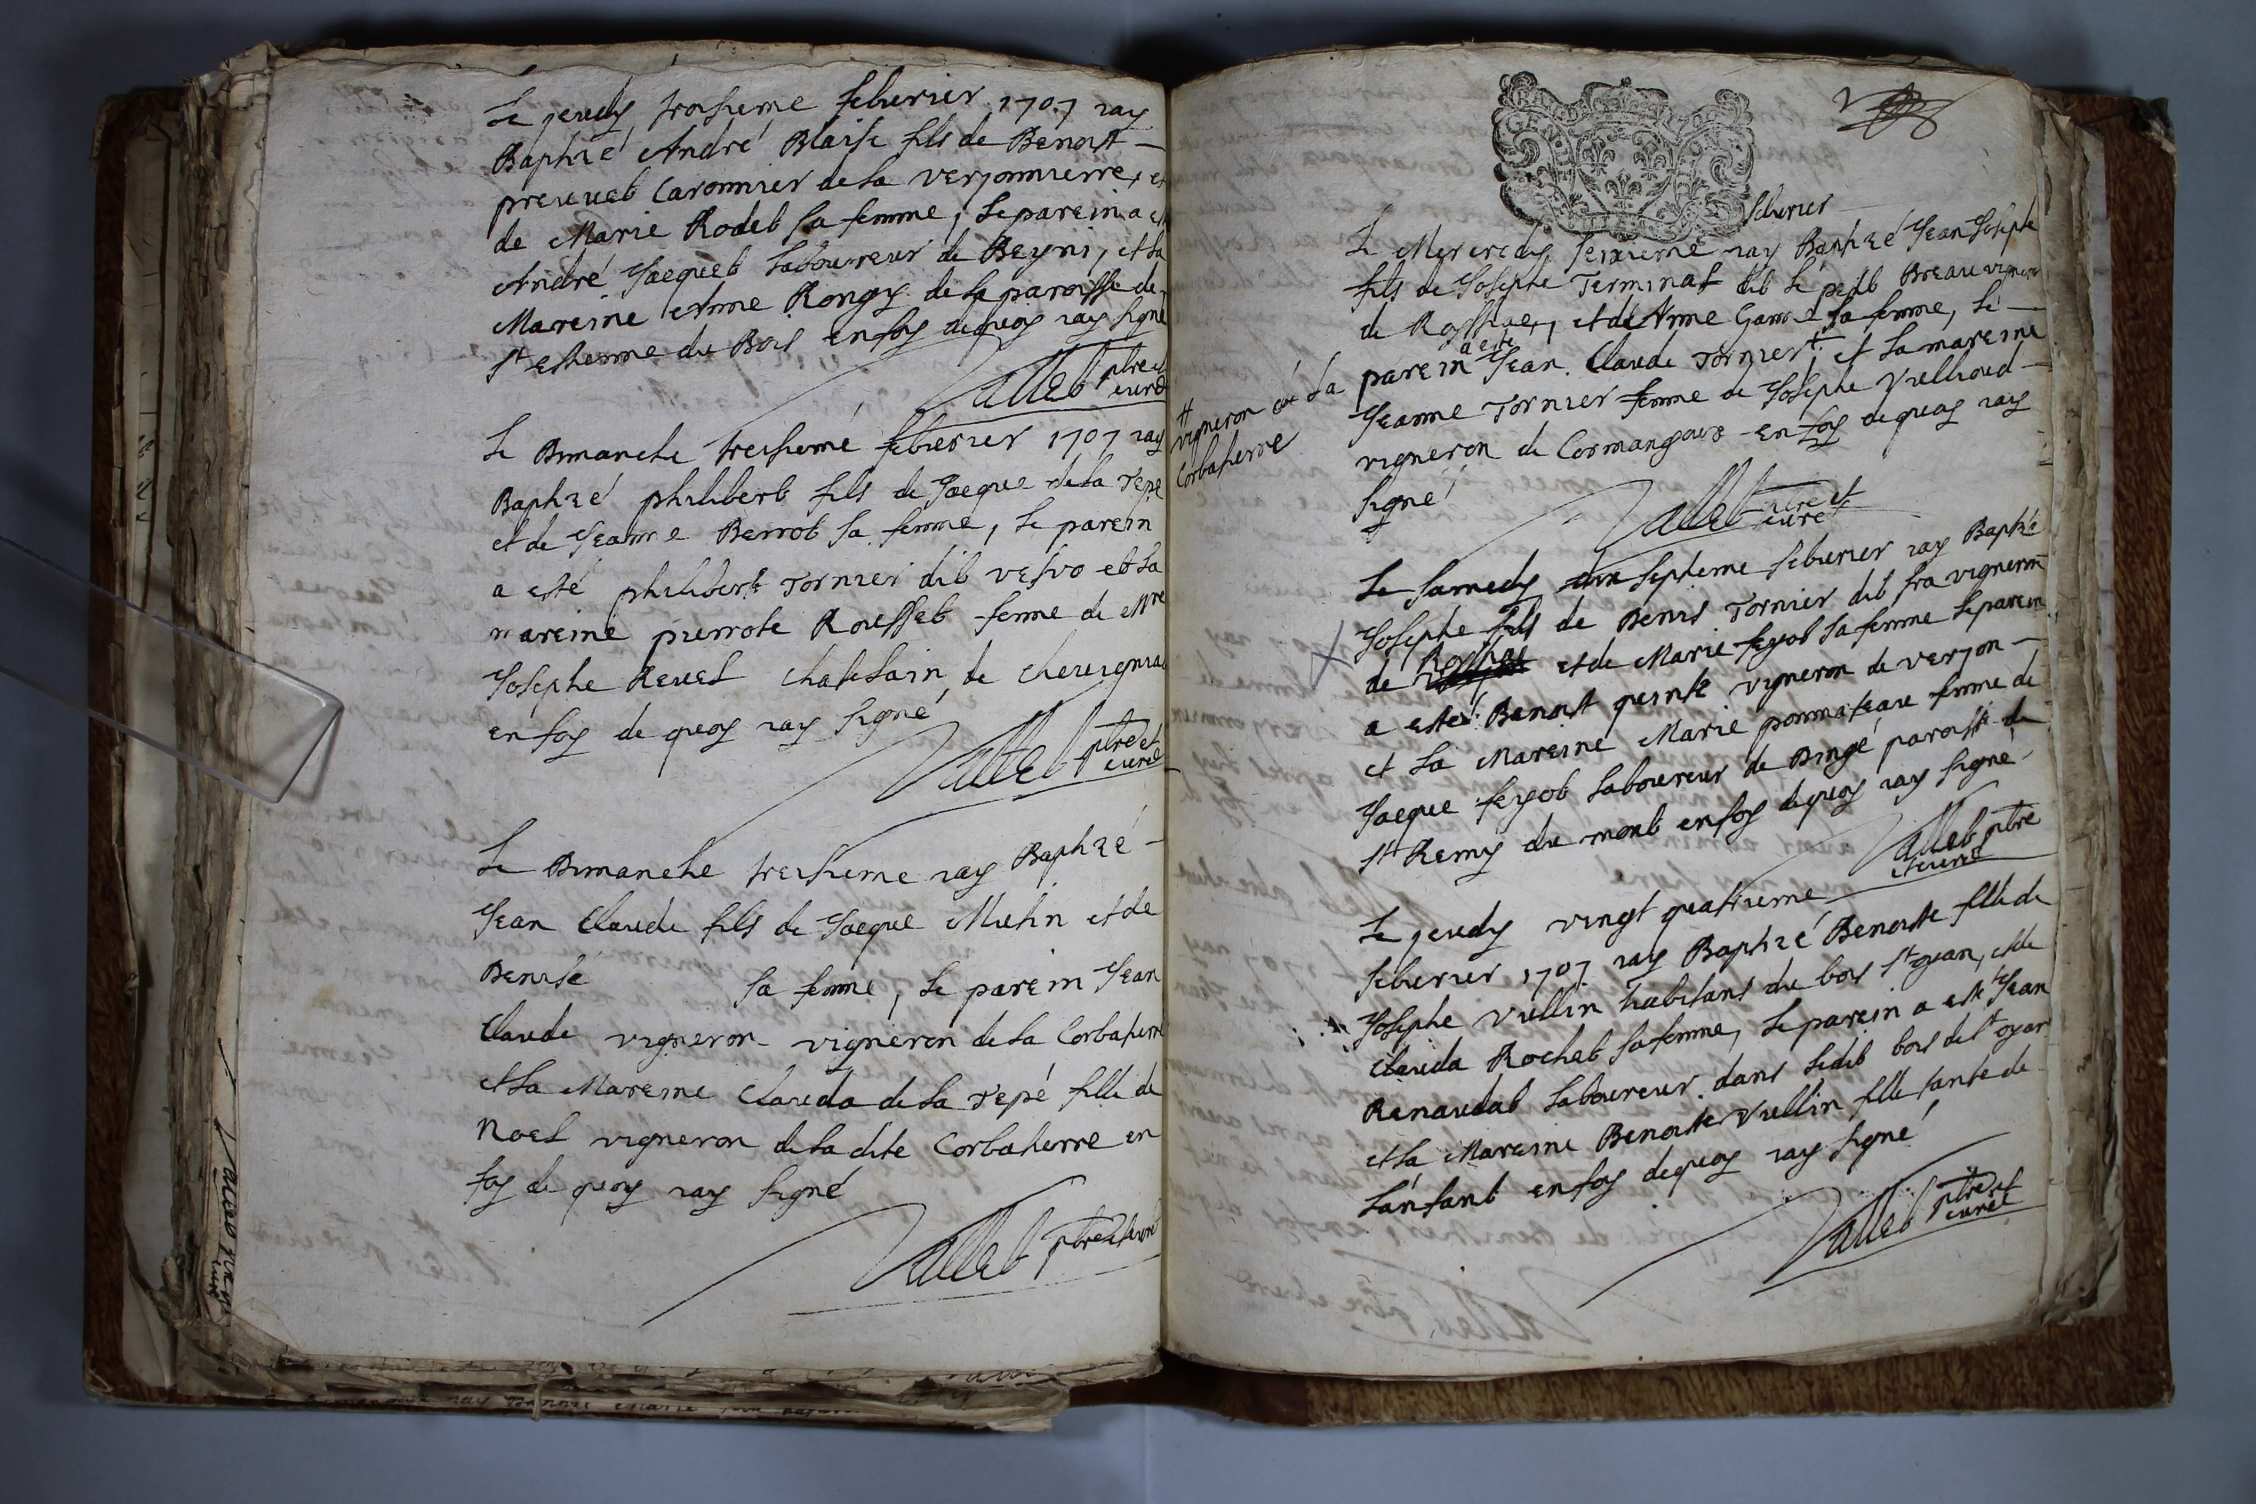 Le jeudy troisieme feburier 1707 iay
Baptizé André Blaise fils de Benoist
preuvet Caronnier de la verjonnierre, et
de Marie Rodet sa femme, Le parein a esté
André Jacquet Laboureur de Beyni, et La
Mareine Anne Rongy de la paroisse de
St estienne du Bois en foy dequoy iay signé
Vallet ptre et
curé
Le Dimanche treisiemé feburier 1707 iay
Baptizé philibert fils de Jaque de la Tepe
et de Jeanne Berrot sa femme, Le parein
a esté philibert Tornier dit vesvo et La
mareine pierrote Rousset femme de Mre
Josephe Revel chatelain de chevigniat
en foy de quoy iay signé
Vallet ptre et
curé
Le Dimanche treisieme iay Baptizé
Jean Claude fils de Jaque Mutin et de
Denise sa femme, Le parein Jean
Claude vigneron vigneron de La Corbatierre
et La Mareine Clauda de La Tepé fille de
Noel vigneron de La dite Corbatierre en
foy de quoy iay signé
Vallet ptre et curé
feburier
Le Mercredy seizieme iay Baptizé Jean Josephe
fils de Josephe Terminat dit Le petit Breau vigneron
de et de Anne sa femme, Le
parein a esté Jean Claude Tornier # et La mareine
# vigneron de La
Corbatierre
Jeanne Tornier femme de Josephe Vullioud
vigneron de Cormangoux en foy dequoy iay
signé
Vallet ptre et
curé
Le samedy dix septieme feburier iay Baptizé
Josephe fils de Denis Tornier dit fra vigneron
de et de Marie feyot sa femme Le parein
a esté Benoist quinte vigneron de verjon
et La Mareine Marie pommateau femme de
Jaque feyot Laboureur de Dingé paroisse de
St Remy du mont en foy dequoy iay signé
Vallet ptre
et curé
Le jeudy vingt quatrieme
feburier 1707 iay Baptizé Benoiste fille de
Josephe Vullin habitant du bois St oyan, et de
Clauda Rochet sa femme, Le parein a esté Jean
Renaudat Laboureur dans Ledit bois de St oyan
et La Mareine Benoiste Vullin fille tante de
L'anfant en foy dequoy iay signé
Vallet ptre et
curé